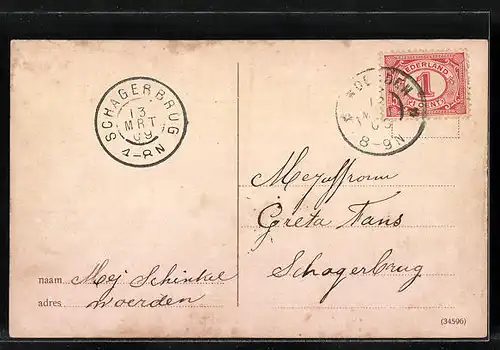 SCHAGERBRUG
13
MRT
09
4-8N
NEDERLAND
1
CENT
8-9N
Mejuffrouw
Greta Fans
Schagerbrug
naam Mej Schinkel
adres Woerden
(34596)